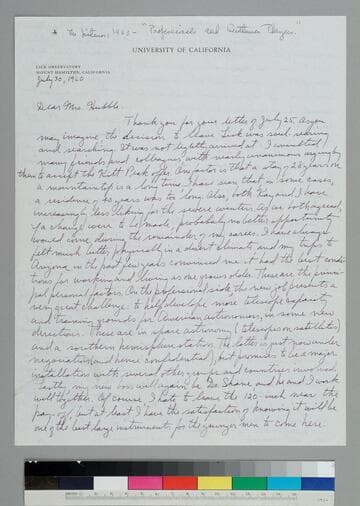 * The Listener, 1963 - "Professionals and Gentlemen Players."
UNIVERSITY OF CALIFORNIA
LICK OBSERVATORY
MOUNT HAMILTON, CALIFORNIA
July 30, 1960
Dear Mrs. Hubble:
Thank you for your letter of July 25. As you
may imagine the decision to leave Lick was soul searing
and searching. It was not lightly arrived at. I consulted
many friends and colleagues, with nearly unanimous urging by
them to accept the Kitt Peak offer. One factor is that a stay of 25 years on
a mountaintop is a long time. I have seen that in some cases,
a residence of 40 years was too long. Also, both Kay and I have
increasingly less liking for the severe winters. So we both agreed,
if a change were to be made, probably no better opportunity
would come during the remainder of my career. I have always
felt much better physically in a desert climate and my trips to
Arizona in the past few years convinced me it had the best condi-
tions for working and living as one grows older. These are the princi-
pal personal factors. On the professional side the new job presents a
very great challenge: to help develope more telescope capacity
and training grounds for American astronomers, in some new
directions. These are in space astronomy (telescopes on satellites)
and a southern hemisphere station. The latter is just now under
negotiation (and hence confidential), but promises to be a major
installation with several other groups and countries involved.
Lastly my new boss will again be Dr. Shane and he and I work
well together. Of course I hate to leave the 120-inch near the
pay-off, but at least I have the satisfaction of knowing it will be
one of the best large instruments for the younger men to come here